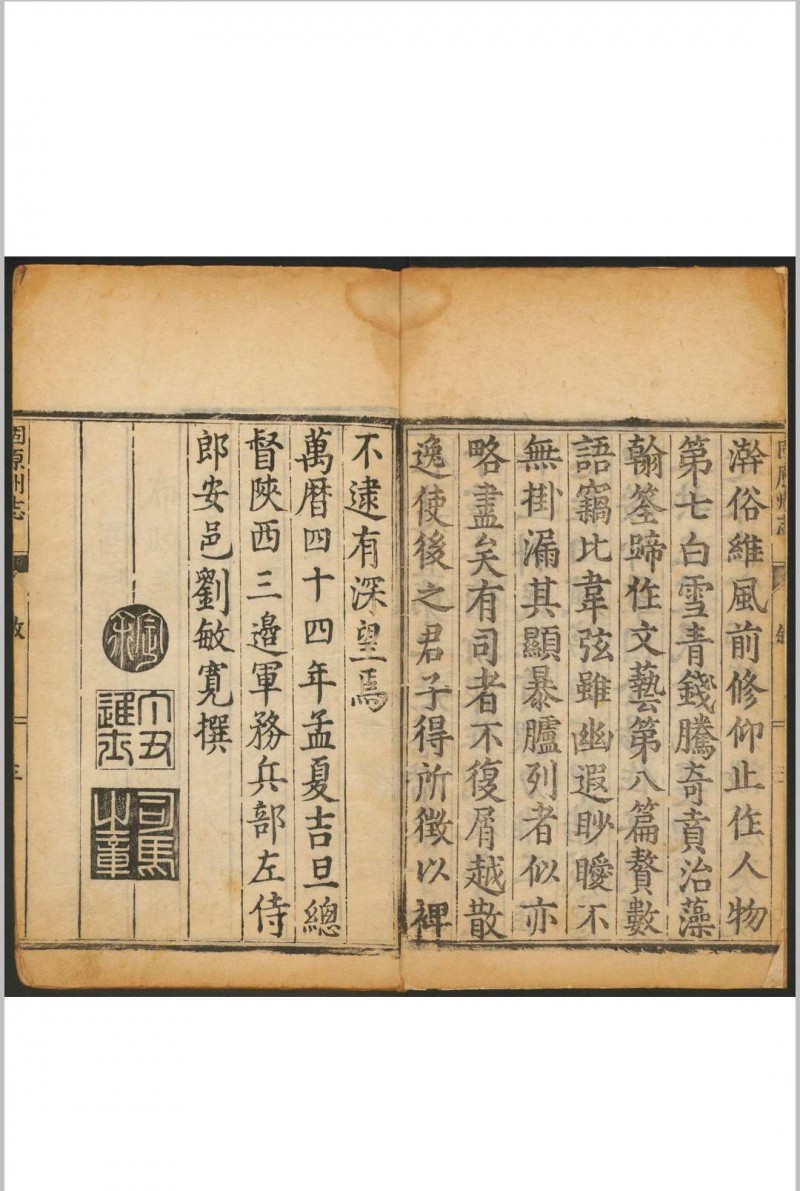 澣俗維風前修仰止作人物
第七白雪青錢騰奇賁治藻
翰筌蹄作文藝第八篇贅數
語竊比韋弦雖幽遐眇曖不
無掛漏其顯暴臚列者似亦
略盡矣有司者不復屑越散
逸使後之君子得所徵以裨
不逮有深望焉
萬曆四十四年孟夏吉旦總
督陝西三邉軍務兵部左侍
郎安邑劉敏寛撰
丁丑進士
司馬之章
固原州志
敘
三